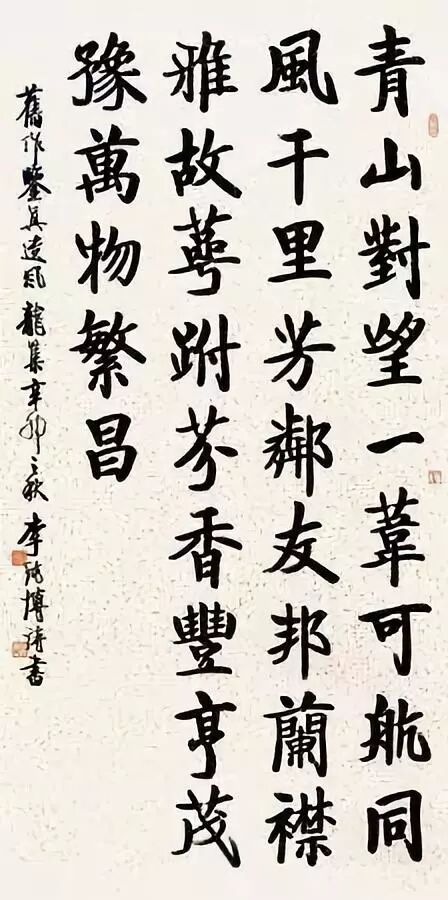 青山對望一葦可航同
風千里芳鄰友邦蘭襟
雅故萼跗芬香豐亨茂
豫萬物繁昌
舊作鑒真 風龍集辛卯之秋李 博濤書